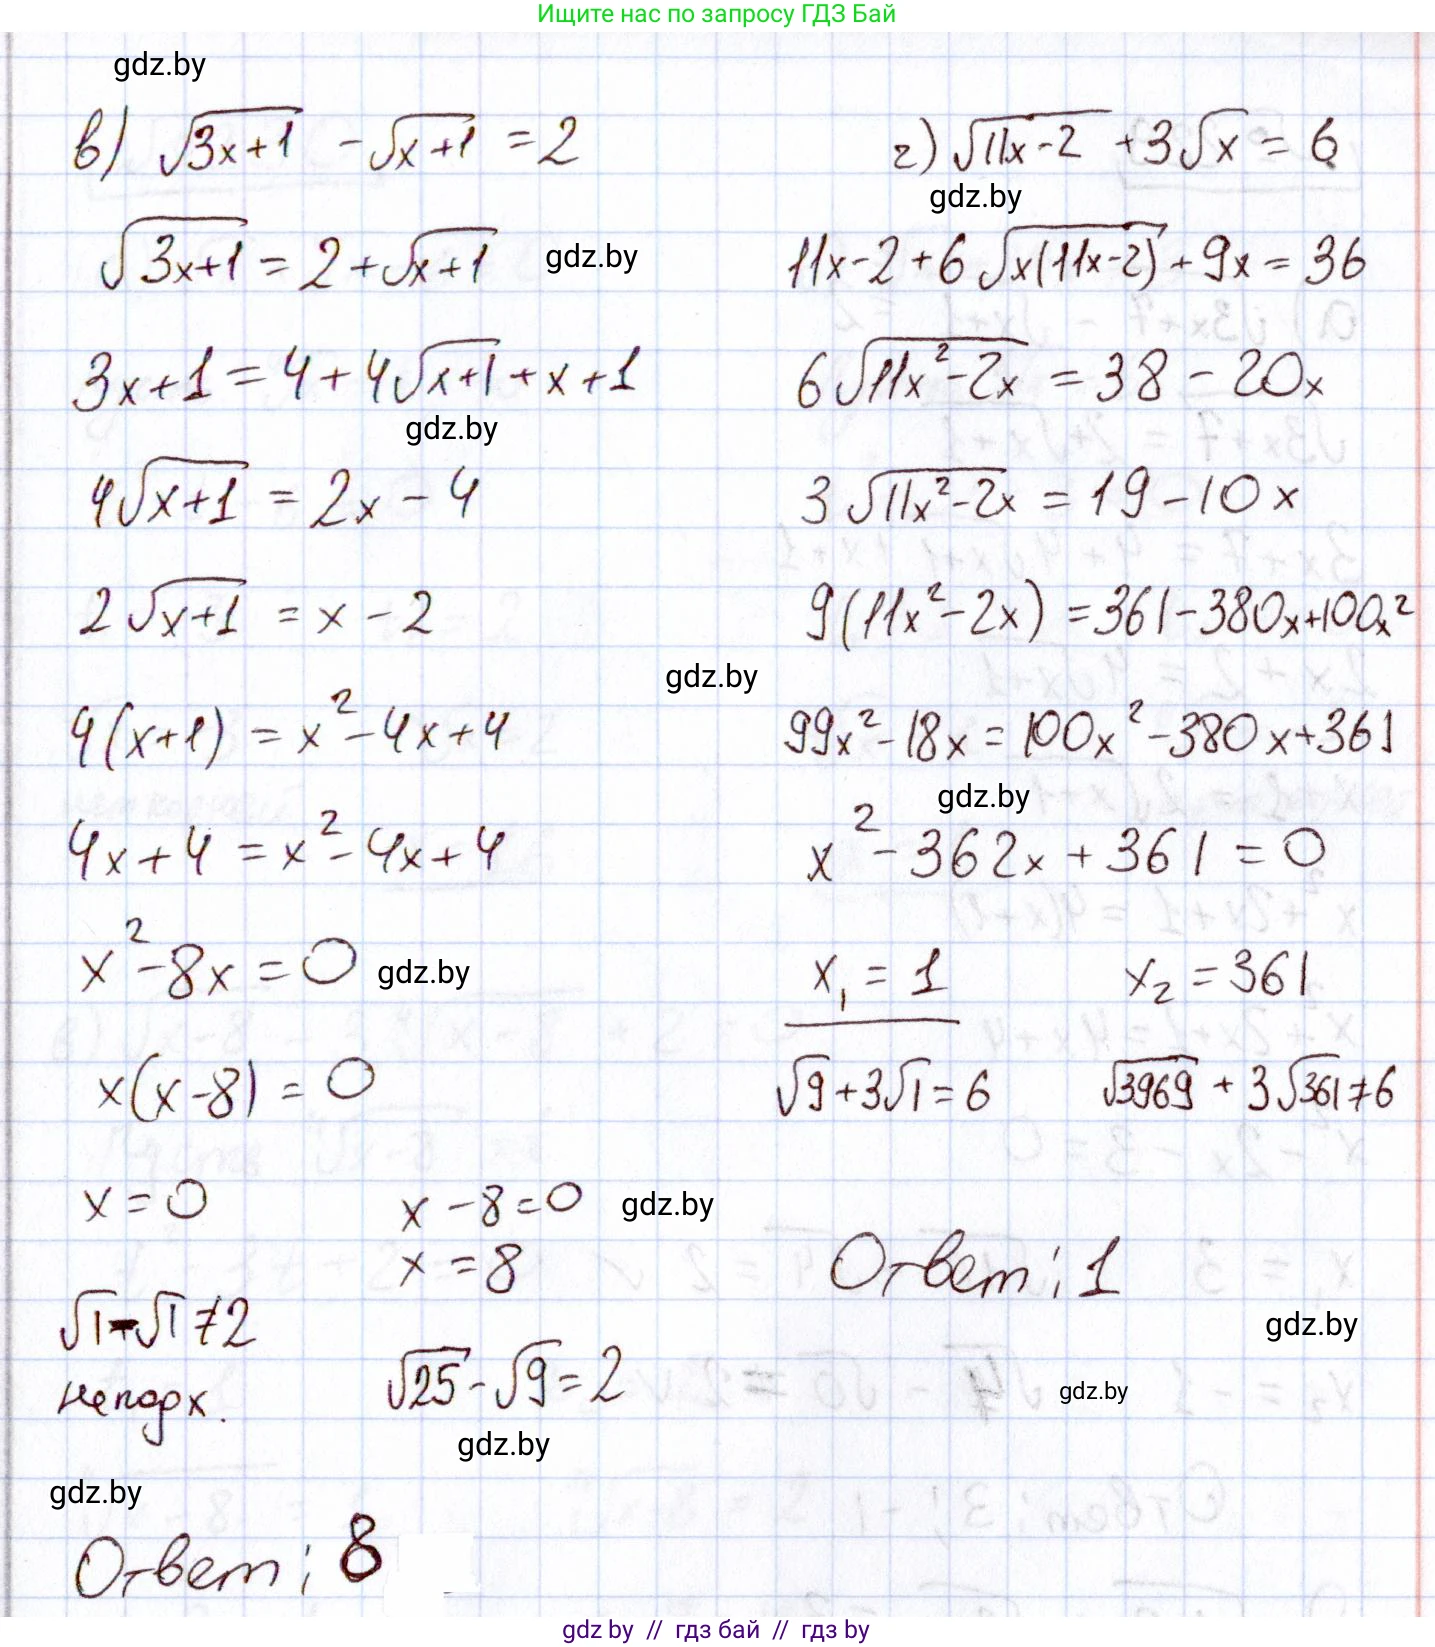 Ищите нас по запросу ГДЗ Бай
gdz.by
в) √(3x+1) - √(x+1) = 2
√(3x+1) = 2 + √(x+1)
gdz.by
3x+1 = 4 + 4√(x+1) + x + 1
gdz.by
4√(x+1) = 2x - 4
2√(x+1) = x - 2
gdz.by
4(x+1) = x² - 4x + 4
4x + 4 = x² - 4x + 4
x² - 8x = 0
gdz.by
x(x-8) = 0
x = 0
x - 8 = 0
gdz.by
x = 8
√1 - √1 ≠ 2
не подх.
√25 - √9 = 2
gdz.by
gdz.by
Ответ: 8
г) √(11x-2) + 3√x = 6
gdz.by
11x-2 + 6√(x(11x-2)) + 9x = 36
6√(11x²-2x) = 38 - 20x
3√(11x²-2x) = 19 - 10x
9(11x²-2x) = 361 - 380x + 100x²
99x² - 18x = 100x² - 380x + 361
gdz.by
x² - 362x + 361 = 0
x₁ = 1
x₂ = 361
√9 + 3√1 = 6
√3969 + 3√361 ≠ 6
Ответ: 1
gdz.by
gdz.by
gdz by // гдз бай // гдз by